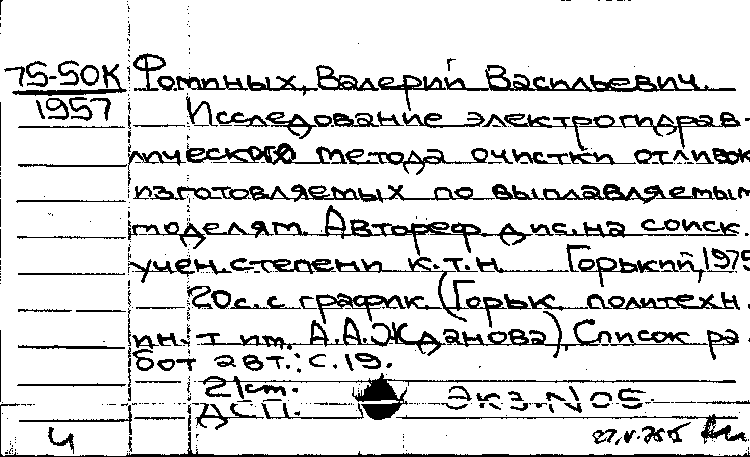 75-50К Фоминых, Валерий Васильевич.
1957 Исследование электрогидрав-
лического метода очистки отливок
изготовляемых по выплавляемым
моделям. Автореф. дис. на соиск.
учен. степени к.т.н. Горький, 1975
20 с. с график. (Горьк. политехн.
ин-т им. А.А. Жданова). Список ра-
бот авт.: с. 19.
21 см.
ДСП. Экз. N 05
Ч 27.V.75